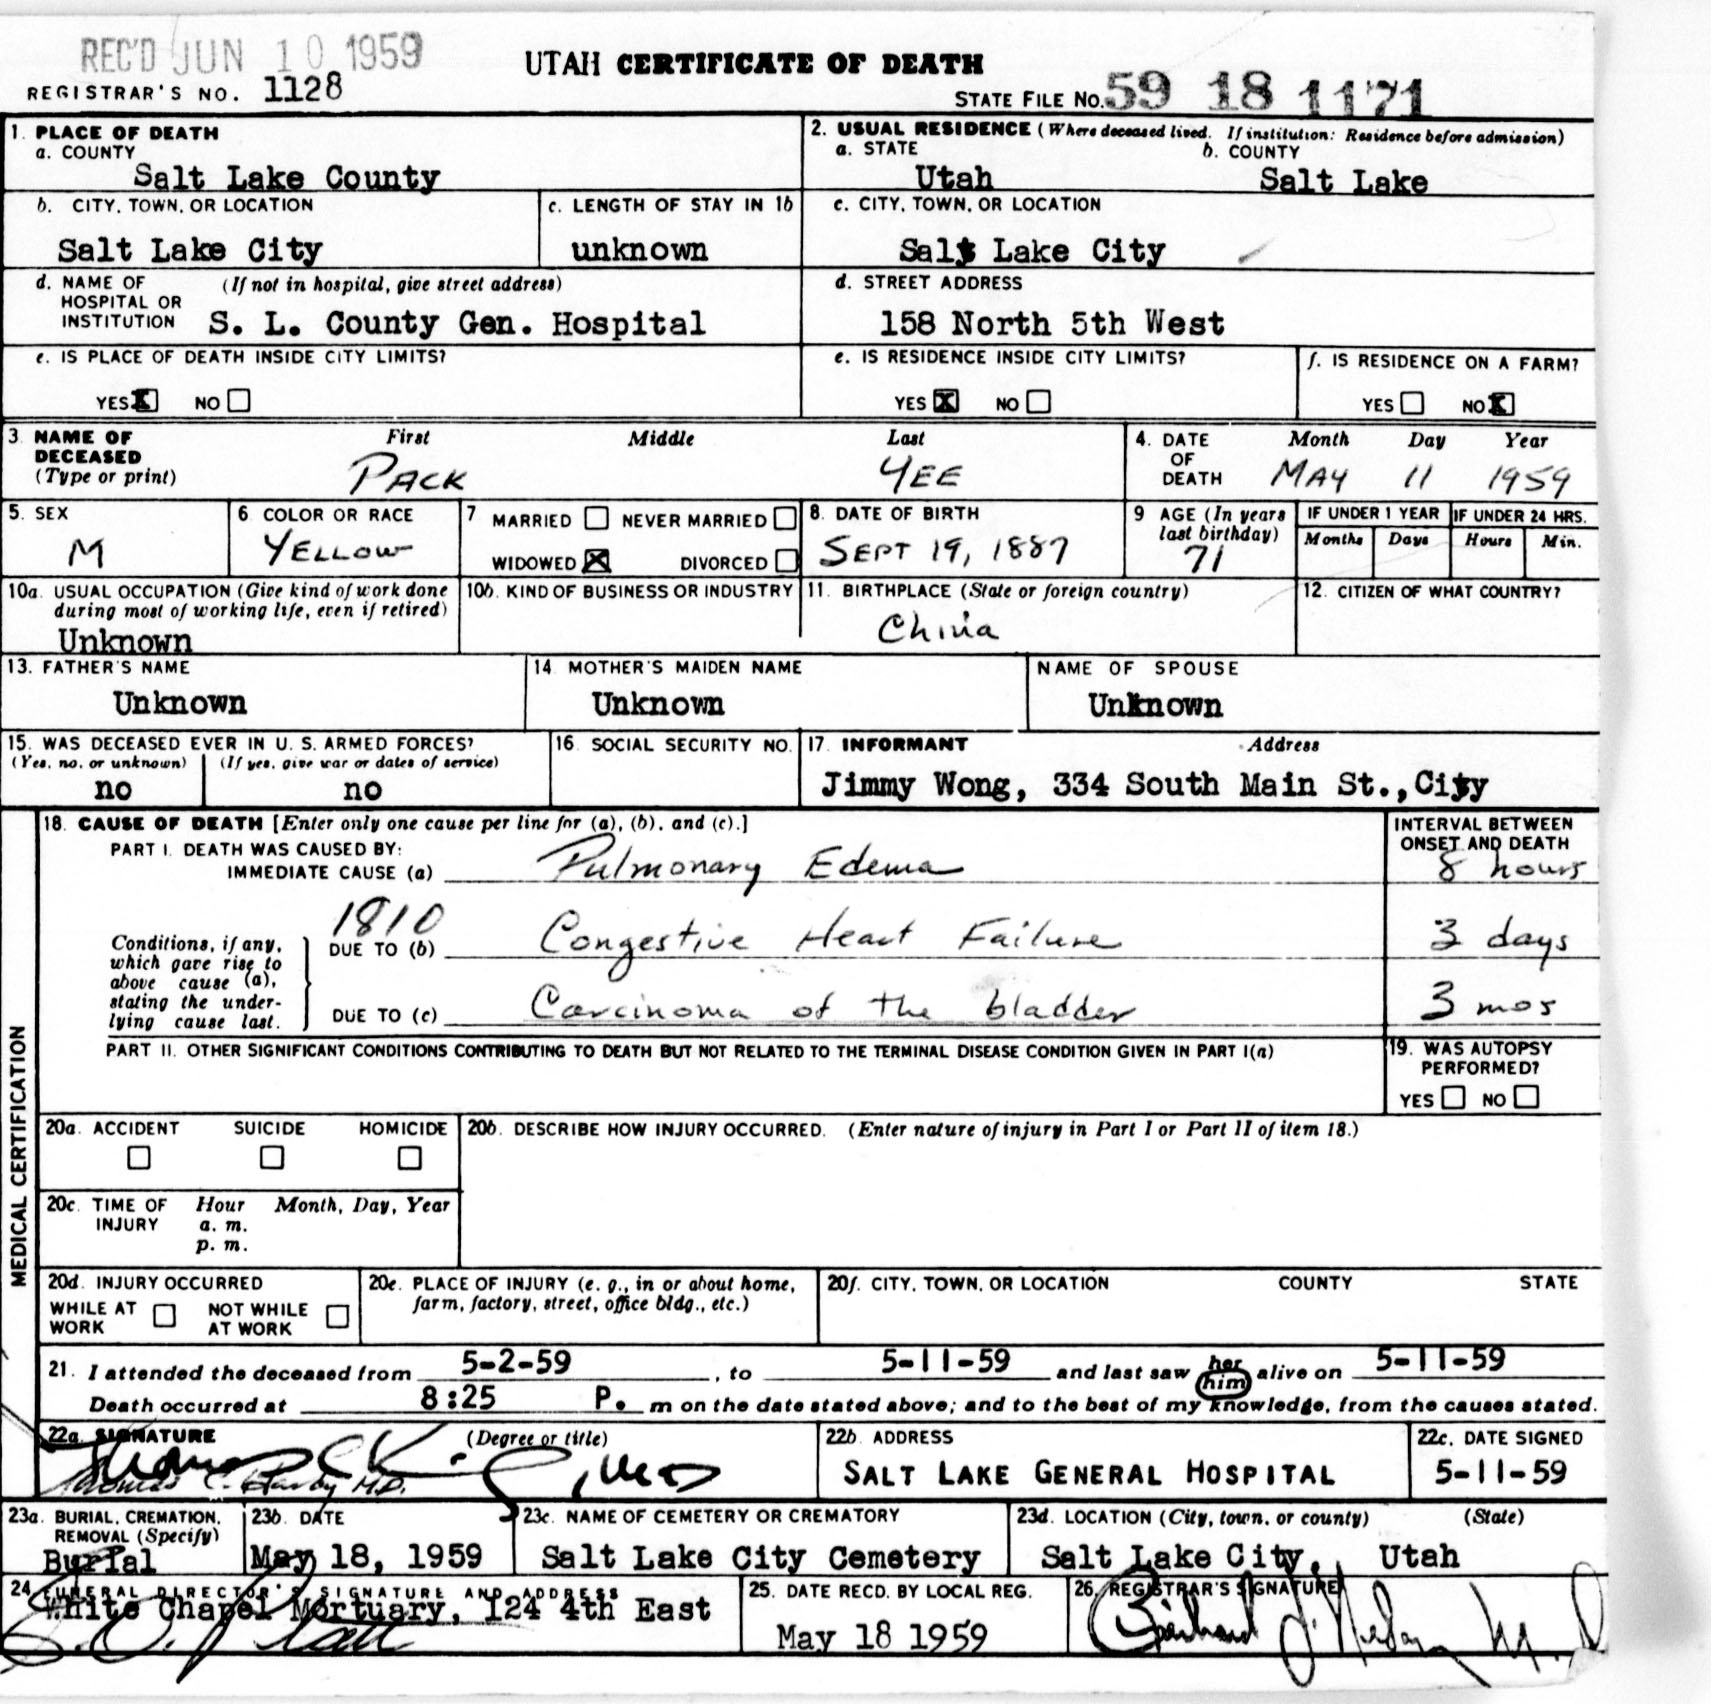 REC'D JUN 10 1959
UTAH CERTIFICATE OF DEATH
REGISTRAR'S NO. 1128
STATE FILE NO. 59 18 1171
1. PLACE OF DEATH
a. COUNTY
Salt Lake County
2. USUAL RESIDENCE (Where deceased lived. If institution: Residence before admission)
a. STATE b. COUNTY
Utah Salt Lake
b. CITY, TOWN, OR LOCATION
Salt Lake City
c. LENGTH OF STAY IN 1b
unknown
c. CITY, TOWN, OR LOCATION
Salt Lake City
d. NAME OF HOSPITAL OR INSTITUTION (If not in hospital, give street address)
S. L. County Gen. Hospital
d. STREET ADDRESS
158 North 5th West
e. IS PLACE OF DEATH INSIDE CITY LIMITS?
YES X NO
e. IS RESIDENCE INSIDE CITY LIMITS?
YES X NO
f. IS RESIDENCE ON A FARM?
YES NO X
3. NAME OF DECEASED (Type or print)
First Middle Last
PACK YEE
4. DATE OF DEATH
Month Day Year
MAY 11 1959
5. SEX
M
6 COLOR OR RACE
YELLOW
7 MARRIED NEVER MARRIED
WIDOWED X DIVORCED
8. DATE OF BIRTH
SEPT 19, 1887
9 AGE (In years last birthday)
71
IF UNDER 1 YEAR
Months Days
IF UNDER 24 HRS.
Hours Min.
10a. USUAL OCCUPATION (Give kind of work done during most of working life, even if retired)
Unknown
10b. KIND OF BUSINESS OR INDUSTRY
11. BIRTHPLACE (State or foreign country)
China
12. CITIZEN OF WHAT COUNTRY?
13. FATHER'S NAME
Unknown
14 MOTHER'S MAIDEN NAME
Unknown
NAME OF SPOUSE
Unknown
15. WAS DECEASED EVER IN U. S. ARMED FORCES?
(Yes, no, or unknown) (If yes, give war or dates of service)
no no
16. SOCIAL SECURITY NO.
17. INFORMANT Address
Jimmy Wong, 334 South Main St., City
MEDICAL CERTIFICATION
18. CAUSE OF DEATH [Enter only one cause per line for (a), (b), and (c).]
PART I. DEATH WAS CAUSED BY:
IMMEDIATE CAUSE (a) Pulmonary Edema
INTERVAL BETWEEN ONSET AND DEATH
8 hours
1810
Conditions, if any, which gave rise to above cause (a), stating the underlying cause last.
DUE TO (b) Congestive Heart Failure 3 days
DUE TO (c) Carcinoma of the bladder 3 mos
PART II. OTHER SIGNIFICANT CONDITIONS CONTRIBUTING TO DEATH BUT NOT RELATED TO THE TERMINAL DISEASE CONDITION GIVEN IN PART I(a)
19. WAS AUTOPSY PERFORMED?
YES NO
20a. ACCIDENT SUICIDE HOMICIDE
20b. DESCRIBE HOW INJURY OCCURRED. (Enter nature of injury in Part I or Part II of item 18.)
20c. TIME OF INJURY Hour Month, Day, Year
a. m.
p. m.
20d. INJURY OCCURRED
WHILE AT WORK NOT WHILE AT WORK
20e. PLACE OF INJURY (e. g., in or about home, farm, factory, street, office bldg., etc.)
20f. CITY, TOWN, OR LOCATION COUNTY STATE
21. I attended the deceased from 5-2-59, to 5-11-59 and last saw her him alive on 5-11-59
Death occurred at 8:25 P. m on the date stated above; and to the best of my knowledge, from the causes stated.
22a. SIGNATURE (Degree or title)
Thomas C. M.D.
22b. ADDRESS
SALT LAKE GENERAL HOSPITAL
22c. DATE SIGNED
5-11-59
23a. BURIAL, CREMATION, REMOVAL (Specify)
Burial
23b. DATE
May 18, 1959
23c. NAME OF CEMETERY OR CREMATORY
Salt Lake City Cemetery
23d. LOCATION (City, town, or county) (State)
Salt Lake City, Utah
24. FUNERAL DIRECTOR'S SIGNATURE AND ADDRESS
White Chapel Mortuary, 124 4th East
25. DATE RECD. BY LOCAL REG.
May 18 1959
26. REGISTRAR'S SIGNATURE